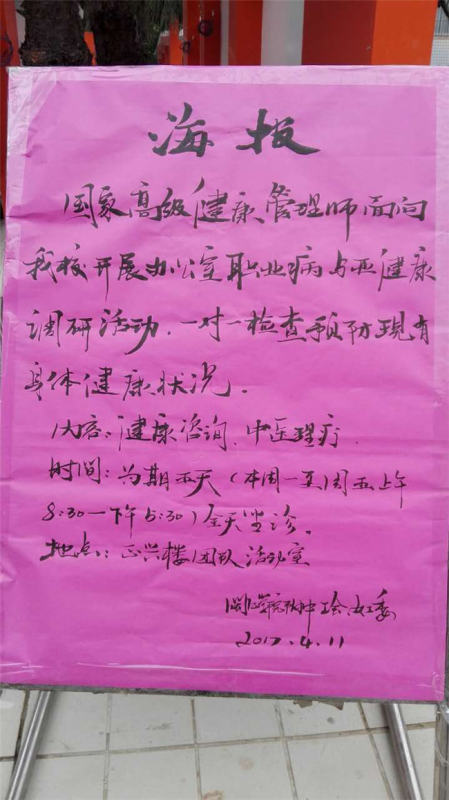 海报
国家高级健康管理师面向
我校开展办公室职业病与亚健康
调研活动.一对一检查预防现有
身体健康状况.
内容:健康咨询.中医理疗.
时间:为期五天(本周一至周五上午
8:30—下午5:30)全天坐诊.
地点:正兴楼团队活动室
工会女工委
2017.4.11